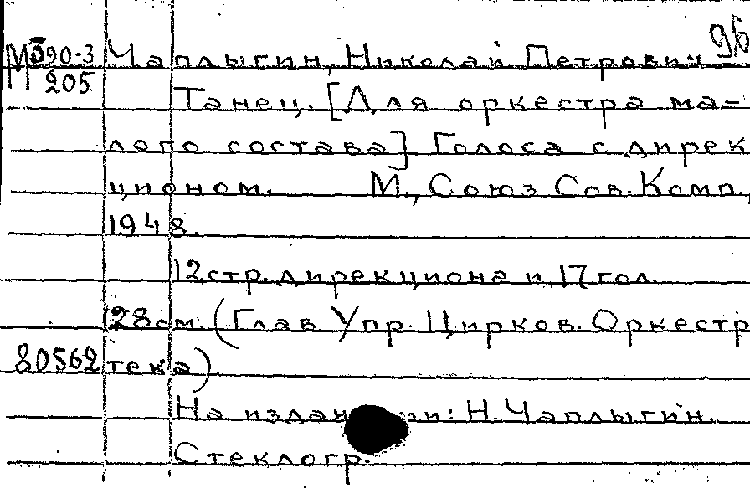 96
М090-3 Чаплыгин, Николай Петрович
205
Танец. [Для оркестра ма-
лого состава] Голоса с дирек
ционом. М., Союз Сов. Комп.,
1948.
12 стр. дирекциона и 17 гол.
28 см. (Глав Упр. Цирков. Оркестр
80562 тека)
На издан ии: Н. Чаплыгин.
Стеклогр.